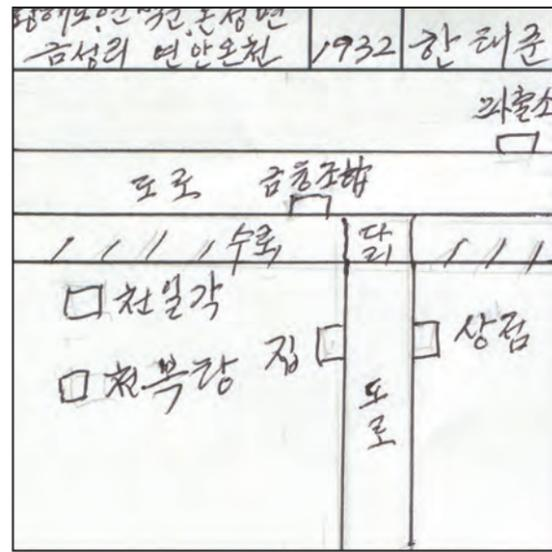 황해도, 연백군, 온정면
금성리 연안온천 1932 한태준
파출소
도로 금융조합
수로 다리
천일각
천복탕 집 상점
도로